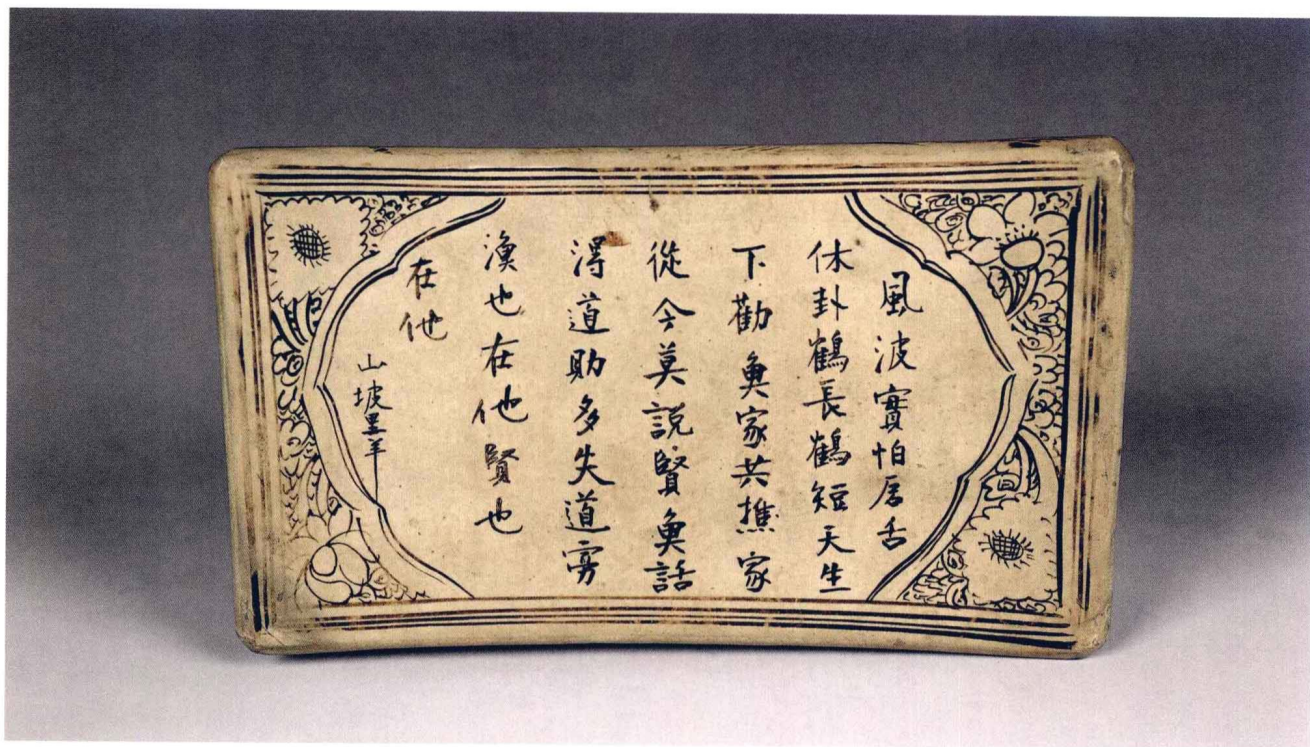 風波實怕唇舌
休卦鶴長鶴短天生
下勸魚家共樵家
從今莫説賢魚話
淂道助多失道寡
漁也在他賢也
在他
山坡里羊